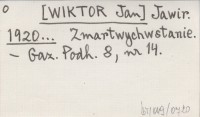 [WIKTOR Jan] Jawir.
1920... Zmartwychwstanie.
– Gaz. Podh. 8, nr 14.